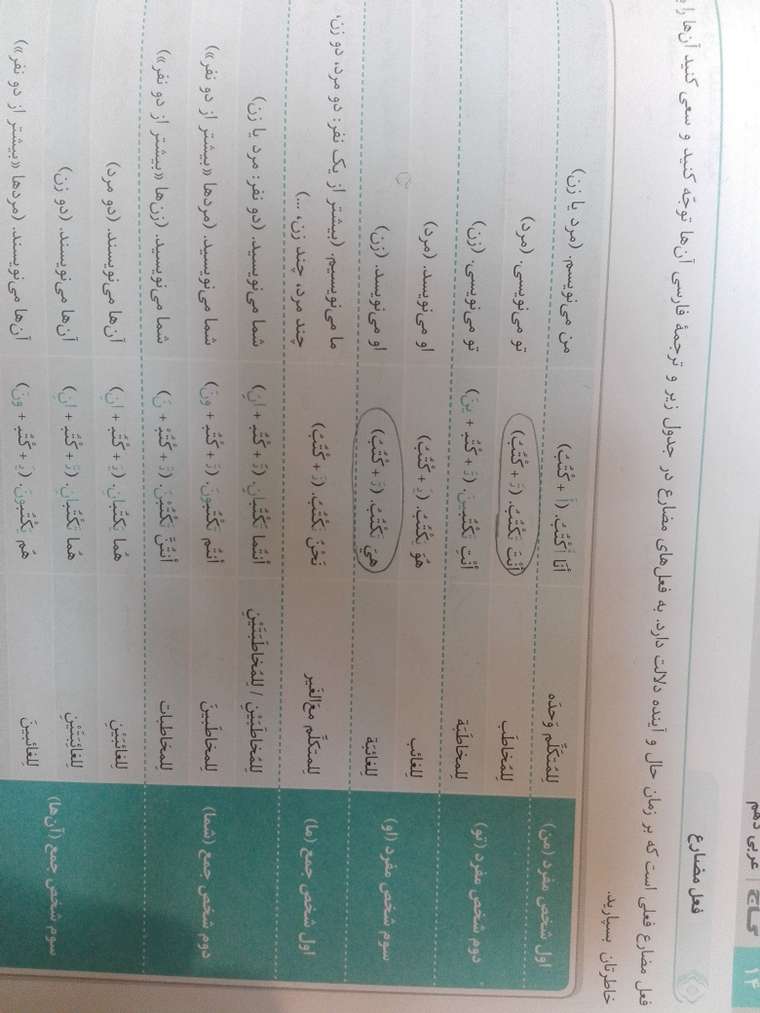 ۱۴ گاج | عربی دهم
فعل مضارع
فعل مضارع فعلی است که بر زمان حال و آینده دلالت دارد. به فعل‌های مضارع در جدول زیر و ترجمهٔ فارسی آن‌ها توجّه کنید و سعی کنید آن‌ها را به
خاطرتان بسپارید.
اول شخص مفرد (من) لِلمُتَکَلِّم وَحدَه أنَا أکْتُبُ. (أ + کْتُبُ) من می‌نویسم. (مرد یا زن)
دوم شخص مفرد (تو) لِلمُخاطَب أنْتَ تَکْتُبُ. (تَـ + کْتُبُ) تو می‌نویسی. (مرد)
لِلمُخاطَبَة أنْتِ تَکْتُبینَ. (تَـ + کْتُبـ + ینَ) تو می‌نویسی. (زن)
سوم شخص مفرد (او) لِلغائب هُوَ یَکْتُبُ. (یَـ + کْتُبُ) او می‌نویسد. (مرد)
لِلغائبَة هِيَ تَکْتُبُ. (تَـ + کْتُبُ) او می‌نویسد. (زن)
اول شخص جمع (ما) لِلمتکلّم مع‌الغَیر نَحْنُ نَکْتُبُ. (نَـ + کْتُبُ) ما می‌نویسیم. (بیشتر از یک نفر: دو مرد، دو زن،
چند مرد، چند زن، ...)
دوم شخص جمع (شما) لِلمُخاطَبَیْنِ / لِلمُخاطَبَتَیْنِ أنتُما تَکْتُبانِ. (تَـ + کْتُبـ + انِ) شما می‌نویسید. (دو نفر: مرد یا زن)
لِلمخاطَبینَ أنتُم تَکْتُبونَ. (تَـ + کْتُبـ + ونَ) شما می‌نویسید. (مردها «بیشتر از دو نفر»)
لِلمخاطَبات أنتُنَّ تَکْتُبْنَ. (تَـ + کْتُبْـ + نَ) شما می‌نویسید. (زن‌ها «بیشتر از دو نفر»)
سوم شخص جمع (آن‌ها) لِلغائبَیْنِ هُما یَکْتُبانِ. (یَـ + کْتُبـ + انِ) آن‌ها می‌نویسند. (دو مرد)
لِلغائِبَتَیْنِ هُما تَکْتُبانِ. (تَـ + کْتُبـ + انِ) آن‌ها می‌نویسند. (دو زن)
لِلغائبینَ هُم یَکْتُبونَ. (یَـ + کْتُبـ + ونَ) آن‌ها می‌نویسند. (مردها «بیشتر از دو نفر»)